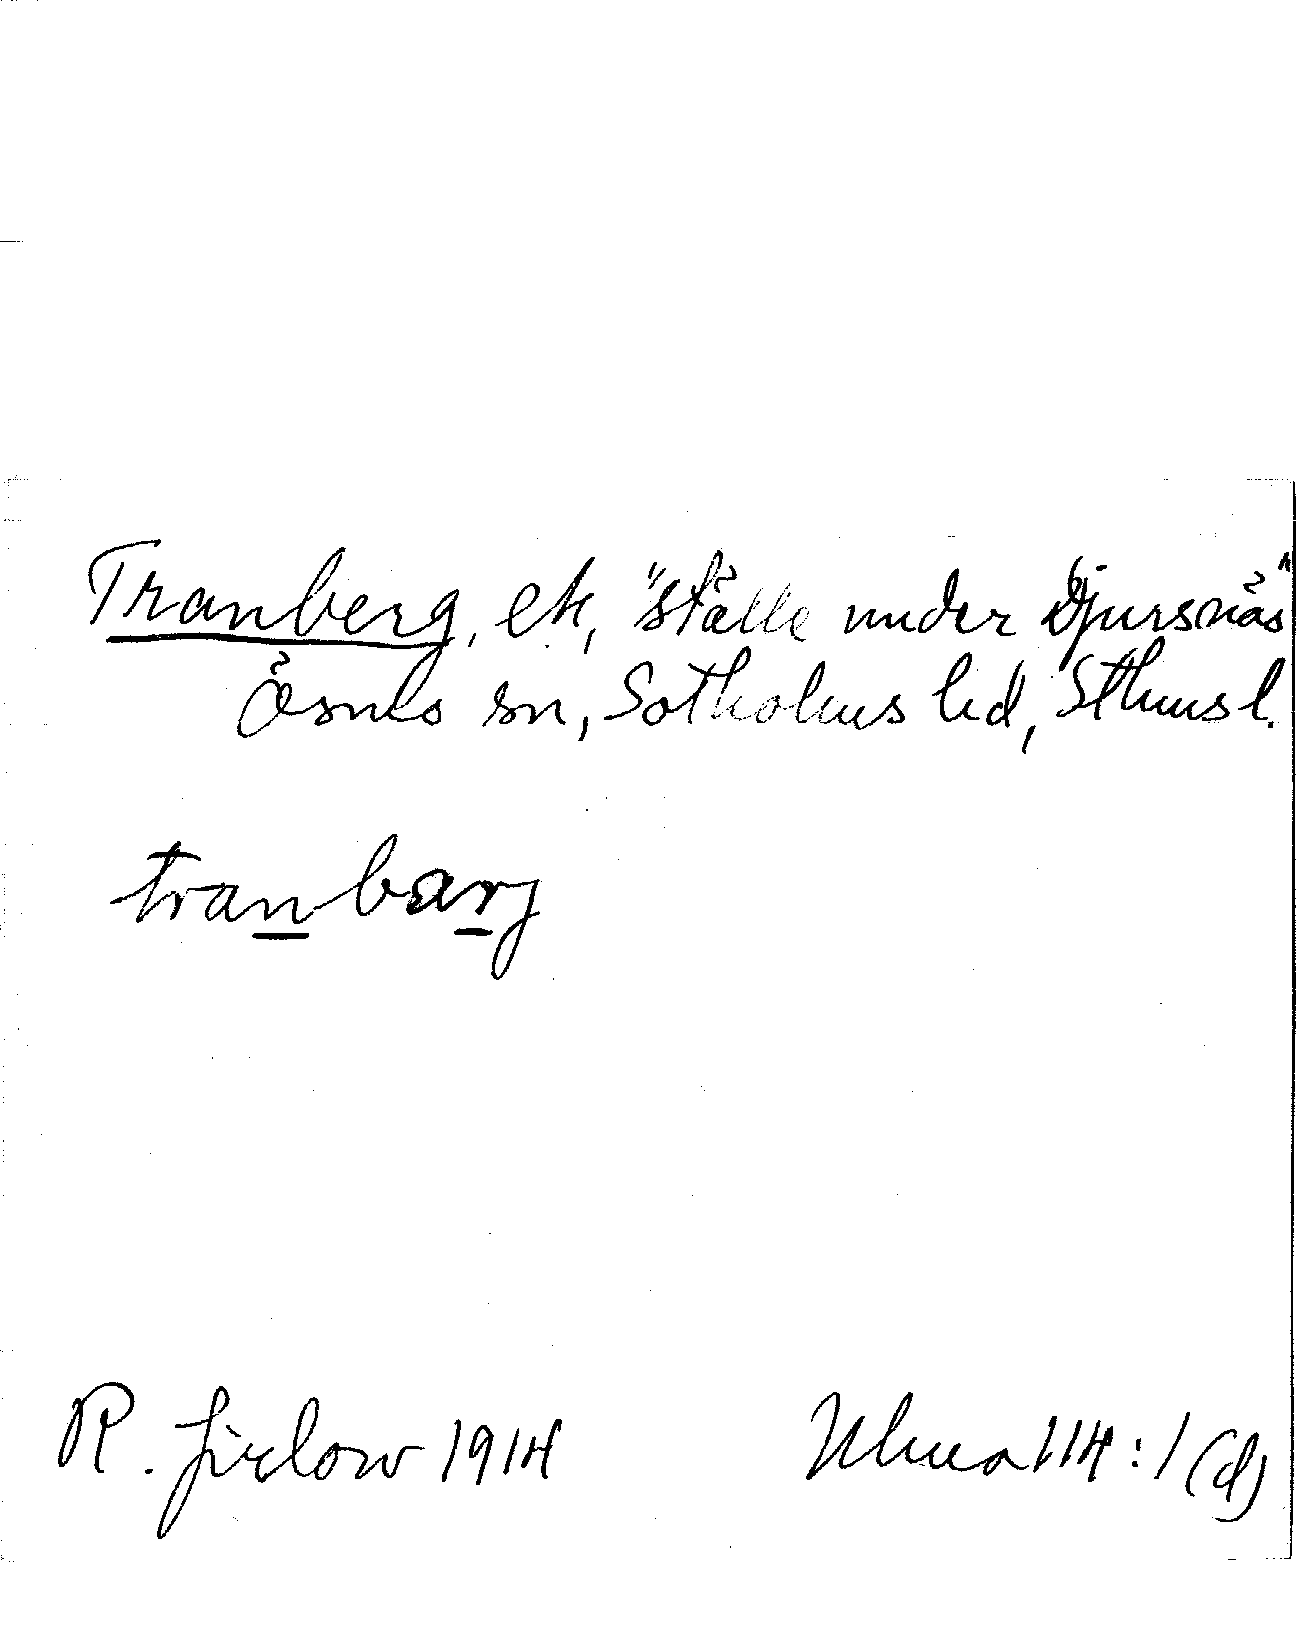 Tranberg, ek, "ställe under Djursnäs"
Ösmo sn, Sotholms hd, Sthms l.
tranbarj
R. Jirlow 1914
Ulma 114:1(d)